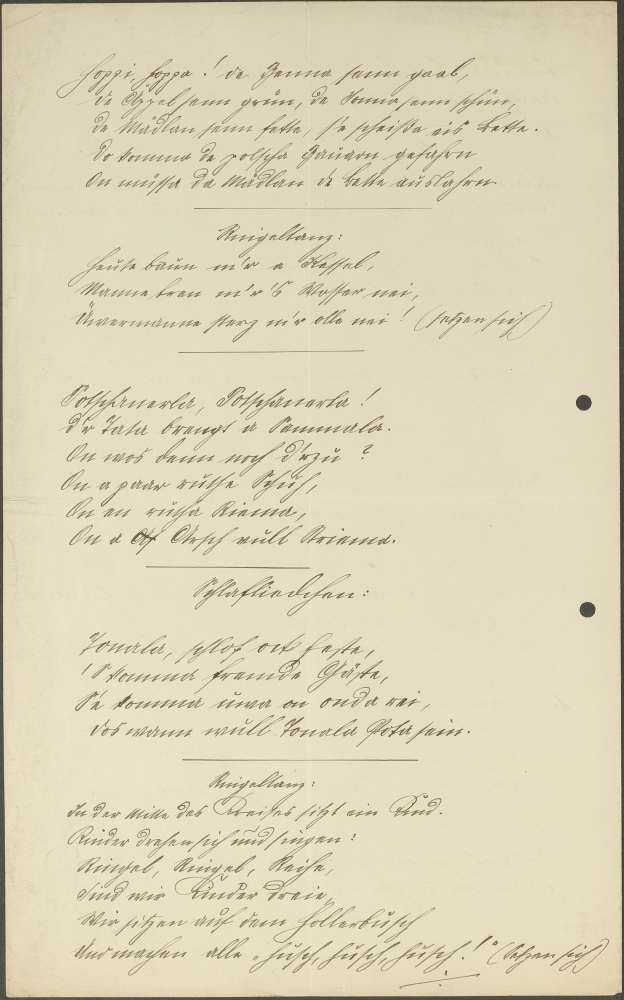 Hoppi, hoppa! de Henna senn gaal,
de Äppel senn grün, de Sonna senn schün,
de Mädlan senn fette, se scheißa eis Bette.
Do komma de polscha Pauarn gefohrn
On müssa da Mädlan de Bette auslahrn.
Ringeltanz:
Heute baun m'r a Kessel,
Manne tran m'r's Wosser nei,
Üwermanne sterz m'r olle nei! (setzen sich)
Potschhanerla, Potschhanerla!
D'r Tata brengt a Sammala.
On wos denn noch d'rzu?
On a paar ruthe Schuh,
On en rutha Riema,
On a Orsch vull Striema.
Schlafliedchen:
Tonala, schlof ock feste,
's komma fremde Gäste,
Se komma üwa on onda rei,
dos wann wull Tonala Pota sein.
Ringeltanz:
In der Mitte des Kreises sitzt ein Kind.
Kinder drehen sich und singen:
Ringel, Ringel, Reihe,
Sind wir Kinder dreie,
Wir sitzen auf dem Hollerbusch
Und machen alle „husch, husch, husch!" (Setzen sich)